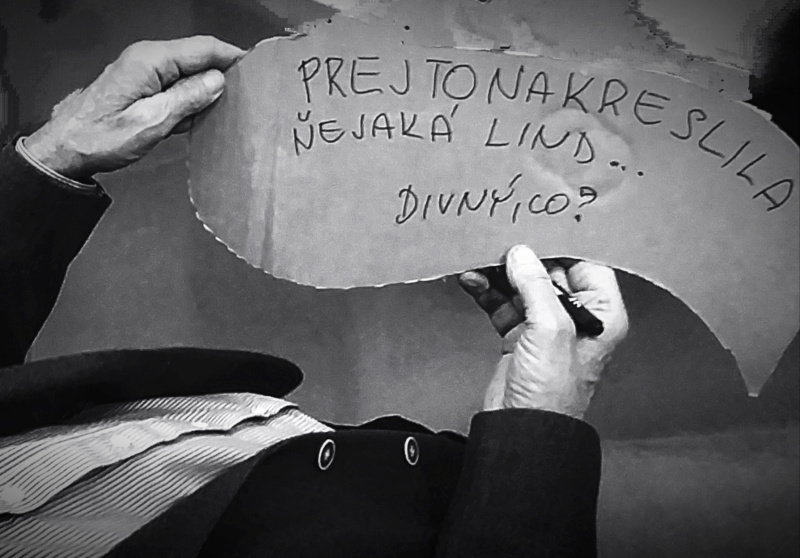 PREJ TO NAKRESLILA
ŇEJAKÁ LIND...
DIVNÝ, CO?